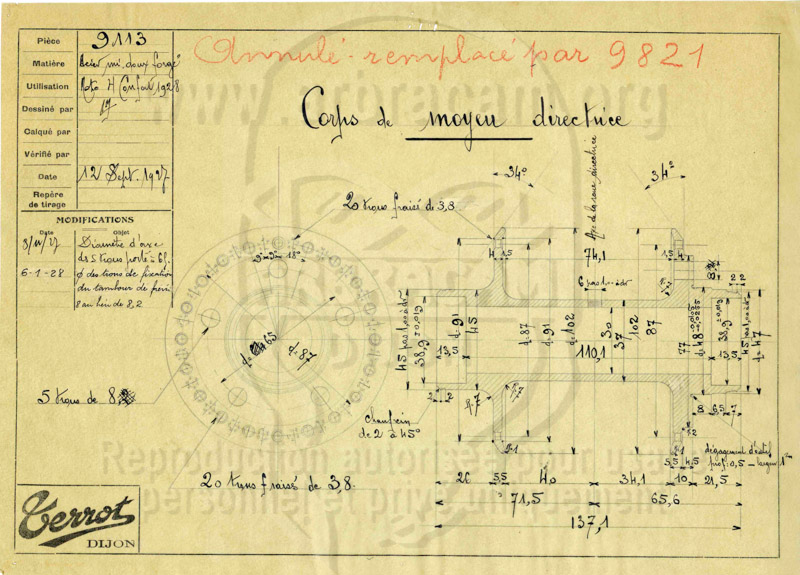 Pièce 9113
Matière Acier mi-doux forgé
Utilisation Moto H Confort 1928
Dessiné par
Calqué par
Vérifié par
Date 12 Sept. 1927
Repère
de tirage
MODIFICATIONS
Date Objet
Diamètre d'axe
des 5 trous porté à 65.
6-1-28 ø des trous de fixation
du tambour de frein
8 au lieu de 8,2
Annulé - remplacé par 9821
Corps de moyeu directrice
34° 34°
Axe de la roue directrice
20 trous fraisé de 3,8
9° 9° 18°
4 1,5 74,1 1,5 4
6 pas 100
2 2
d=65
d=87
45 pas 100
38,9 ±0,013
13,5
d=91
45
d=87
d=91
d=102
110,1
30
37
102
87
77
d=48
38,9
13,5
45 pas 100
d=47
5 trous de 8
2 2
chanfrein
de 2 à 45°
8 6,5 7
dégagement
prof: 0,5 – largeur
20 trous fraisé de 3,8
5,5 4,5
26 5,5 40 34,1 10 21,5
71,5 65,6
137,1
Terrot
DIJON
Reproduction autorisée pour usage
personnel et privé uniquement